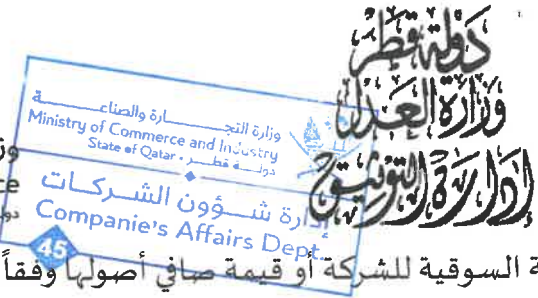 دولة قطر
وزارة العدل
إدارة التوثيق
وزارة التجـــــارة والصناعـــــــة
Ministry of Commerce and Industry
State of Qatar - دولـــة قطـــر
إدارة شـــؤون الشـــركـــات
Companie's Affairs Dept.
45
ة السوقية للشركة أو قيمة صافي أصولها وفقاً